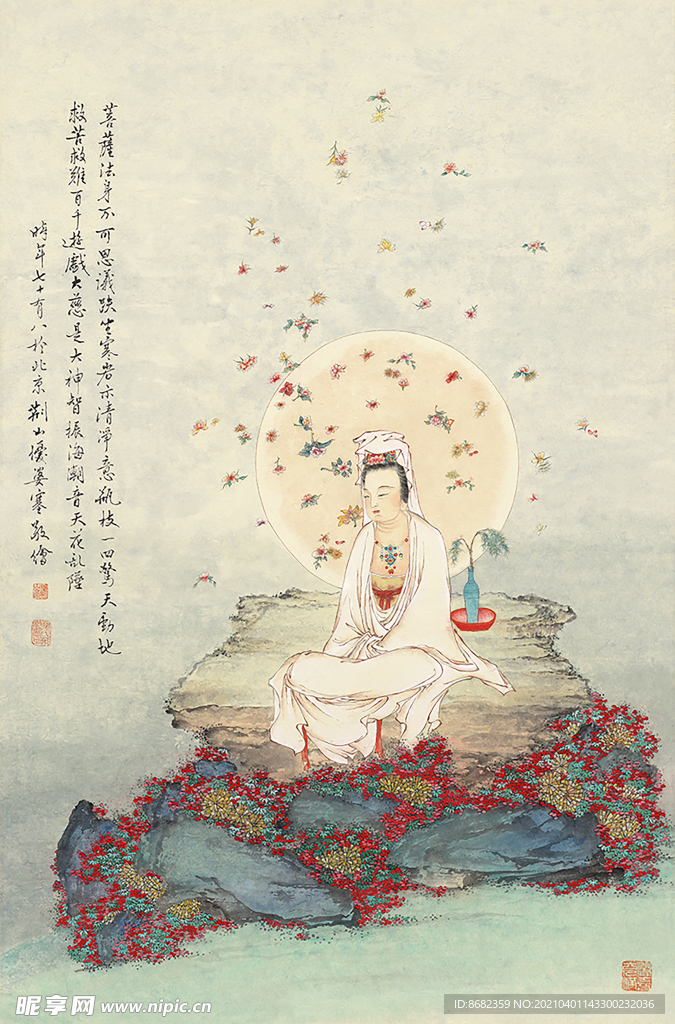 菩薩法身不可思議趺坐寒岩示清淨意瓶枝一回驚天動地
救苦救難百千遊戲大慈是大神智振海潮音天花亂墜
時年七十有八於北京荆山優婆塞敬繪
昵享网 www.nipic.cn
ID:8682359 NO:20210401143300232036